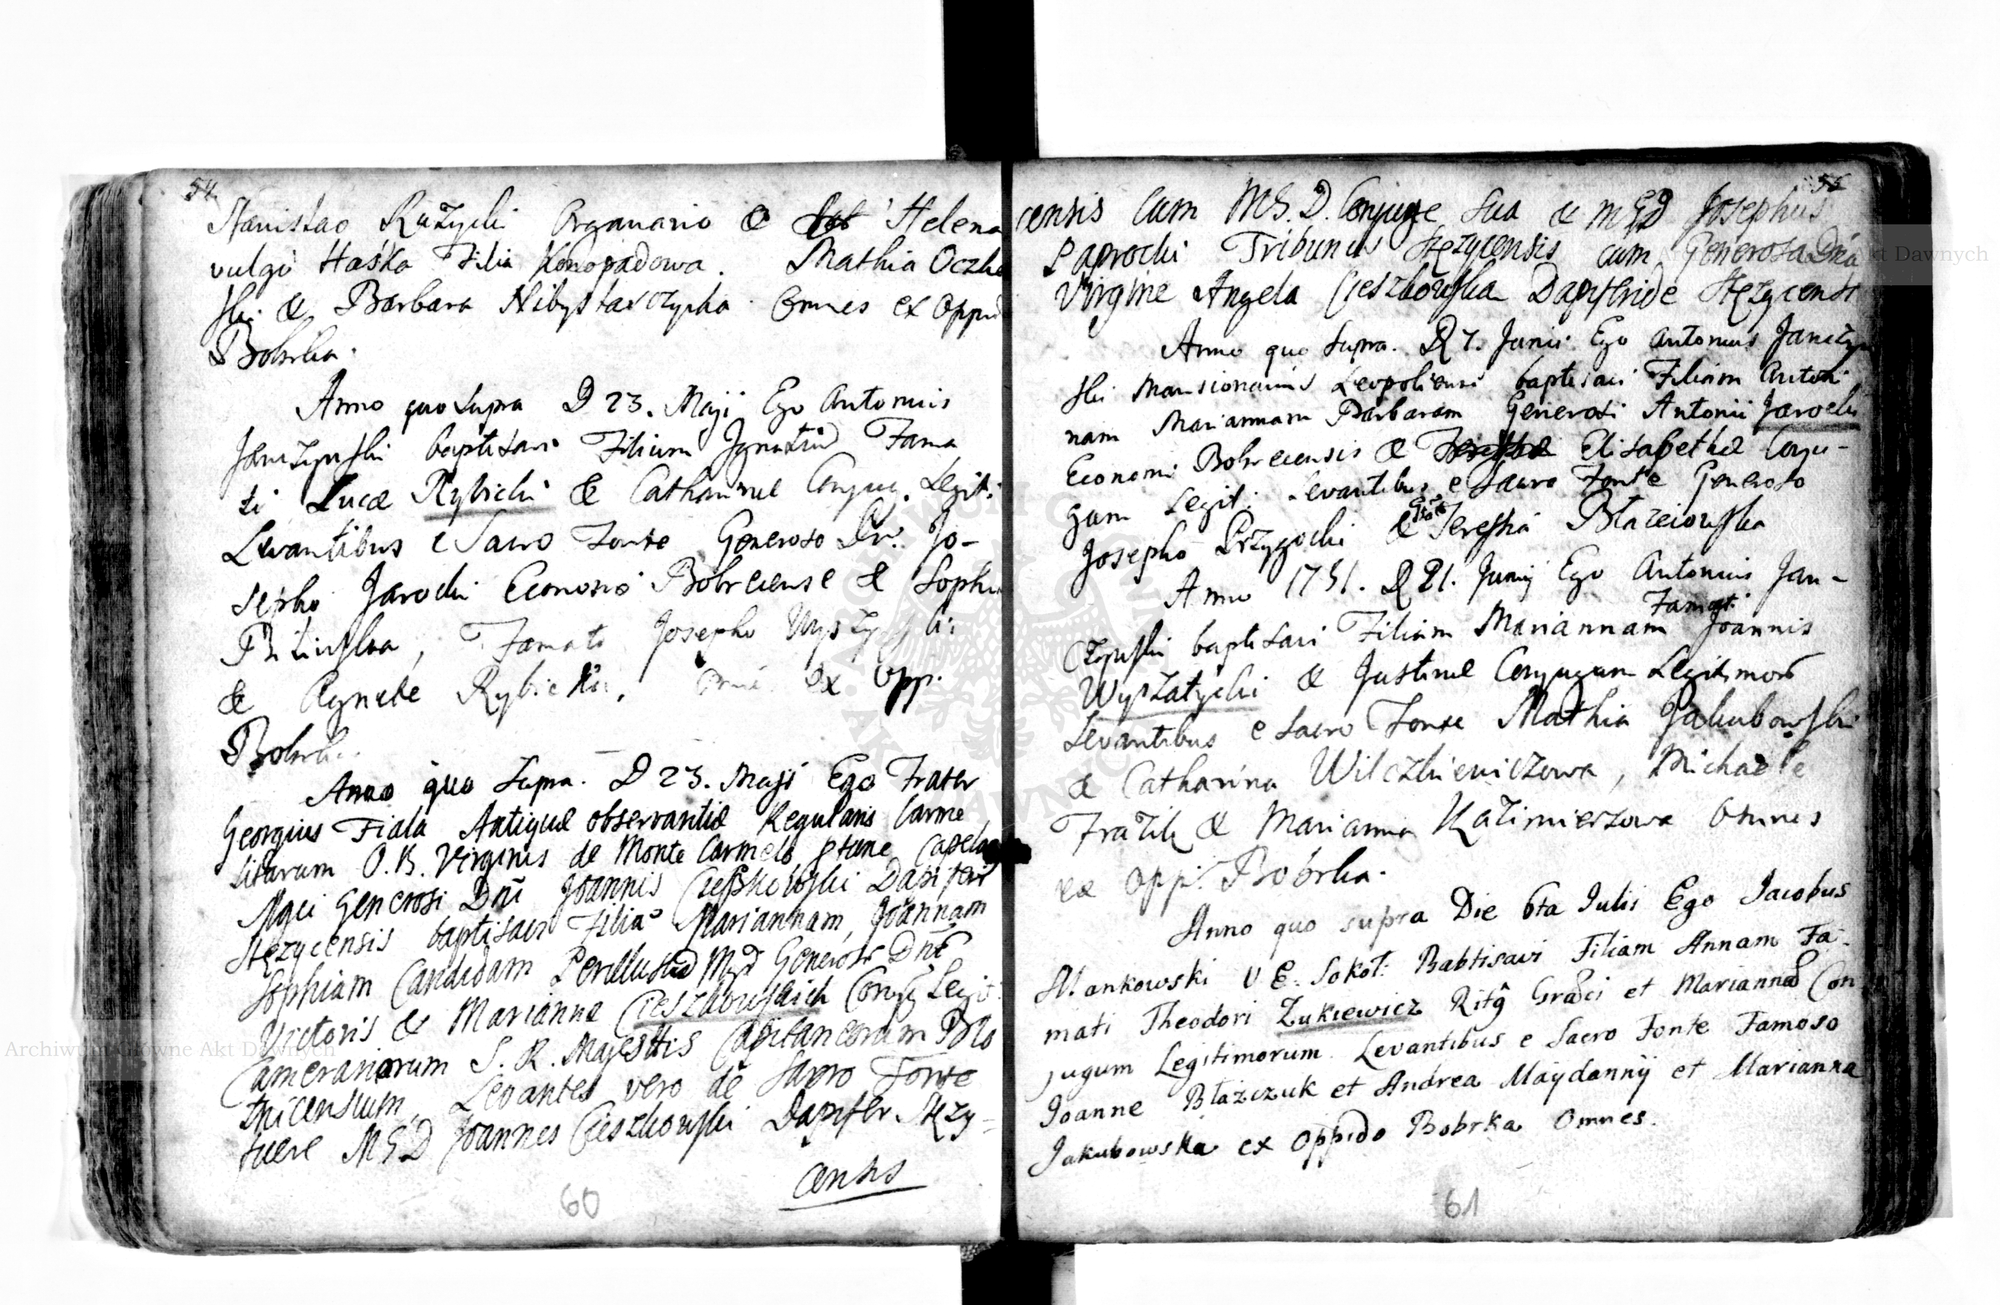 54.
Stanislao Rużycki Organario & Helena
vulgo Haśka Filia Konopadowa. Mathia Oczko
ski & Barbara Nibystarczycka. Omnes ex Oppid
Bobrka.
Anno quo supra D 23. Maji Ego Antonius
Janczynski baptisavi Filium Ignatiū Fama
ti Lucæ Rybicki & Catharinæ Conjug. Legiti
Levantibus e Sacro Fonte Generoso Dn. Jo-
sepho Jarocki Economo Bobrecense & Sophia
Famato Josepho
& Agnete Rybicka, ex Opp.
Bobrka.
Anno quo supra. D 23. Maji Ego Frater
Georgius Fiala Antiquæ observantiæ Regularis Carme
litarum O. B. Virginis de Monte Carmelo, ptunc Capelan
Mgci Generosi Dni Joannis Cieszkowski Dapiferi
Stęzycensis baptisavi Filiā Mariannam, Joannam
Sophiam Candidam Perillustriū Generosor Dnor
Victoris & Mariannæ Cieszkowskich Conjug Legit:
Camerariorum S. R. Majesttis Capitaneorum
Levantes vero de Sacro Fonte
fuere M G D Joannes Cieszkowski Dapifer Stęzy-
censis
60
55
censis Cum M G. D. Conjuge Sua & M G D Josephus
Paprocki Tribunus Stęzycensis cum Generosa Dna
Virgine Angela Cieszkowska Dapiferide Stęzycensi
Anno quo supra. D 7. Junii Ego Antonius Janczyn
ski Mansionarius Leopoliensis baptisavi Filiam Antoni
nam Mariannam Barbaram Generosi Antonii Jarocki
Economi Bobrecensis & Elisabethæ Conju-
gum Legit: Levantibus e Sacro Fonte Generoso
Josepho Przygocki & Gsa Teressia Błazeiowska
Anno 1751. D 21. Junij Ego Antonius Jan-
czynski baptisavi Filiam Mariannam Famati Joannis
Wyszatycki & Justinæ Conjugum Legitimor
Levantibus e Sacro Fonte Mathia Jakubowski
& Catharina Wilczkiewiczowa, Michaele
Frazik & Marianna Kazimierzowa Omnes
ex Opp: Bobrka.
Anno quo supra Die 6ta Julii Ego Jacobus
Mankowski V. E. Sokol: Babtisavi Filiam Annam Fa-
mati Theodori Zukiewicz Ritg Græci et Mariannæ Con
jugum Legitimorum. Levantibus e Sacro Fonte Famoso
Joanne Błażczuk et Andrea Maydannij et Marianna
Jakubowska ex Oppido Bobrka Omnes.
61
Archiwum Główne Akt Dawnych
Akt Dawnych